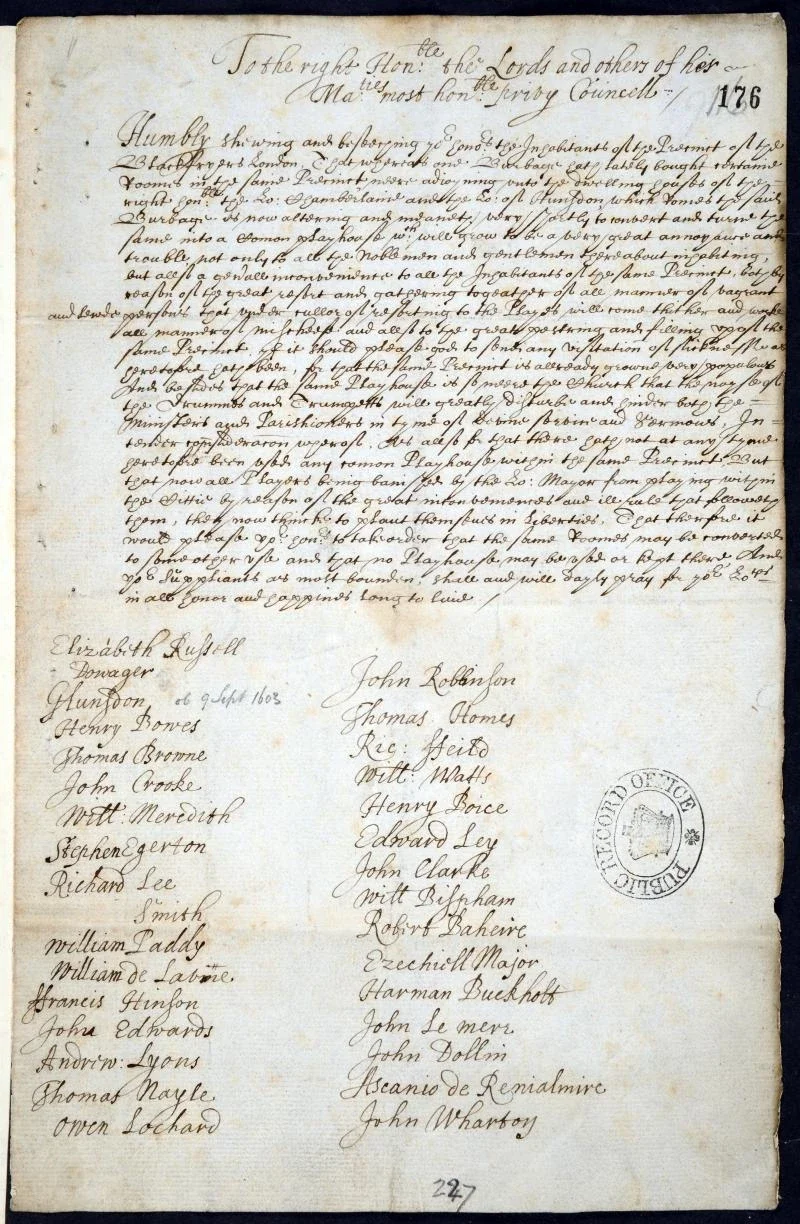 To the right Hon:ble the Lords and others of her
Ma:ties most hon:ble privy Councell
176
Humbly shewing and beseeching yor honors the Inhabitants of the Precinct of the
Blackfryers London, That whereas one Burbage hath lately bought certaine
Roomes in the same Precinct neere adioyning unto the dwelling houses of the
right honble the Lo: Chamberlaine and the Lo: of Hunsdon which Romes the said
Burbage is now altering and meaneth very shortly to convert and turne the
same into a Comon playhouse wch will grow to be a very great annoyance and
trouble, not only to all the Noblemen and gentlemen thereabout inhabiting,
but allso a genrall inconvenience to all the Inhabitants of the same Precinct, both by
reason of the great resort and gathering togeather of all manner of vagrant
and lewde persons that under cullor of resorting to the Playes will come thither and worke
all manner of mischeefe and allso to the great pestring and filling up of the
same Precinct, if it should please god to send any visitation of sicknesse as
heretofore hath been, for that the same Precinct is allready growne very populous
And besides that the same Playhouse is so neere the Church that the noyse of
the Drummes and Trumpetts will greatly disturbe and hinder both the
Ministers and Parishioners in tyme of devine service and Sermons, In
tender consideracon wherof, As allso for that there hath not at any tyme
heretofore been used any comon Playhouse within the same Precinct, But
that now all Players being banished by the Lo: Mayor from playing within
the Cittie by reason of the great inconveniences and ill rule that followeth
them, they now thincke to plant themselves in Liberties, That therfore it
would please yor honors to take order that the same Roomes may be converted
to some other use and that no Playhouse may be used or kept there And
yor Suppliants as most bounden, shall and will dayly pray for yor Lops
in all honor and happines long to live /
Elizabeth Russell
Dowager
GHunsdon ob 9 Sept 1603
Henry Bowes
Thomas Browne
John Crooke
Will: Meredith
Stephen Egerton
Richard Lee
Smith
William Paddy
William de Lavine
ffrancis Hinson
John Edwards
Andrew: Lyons
Thomas Nayle
Owen Lochard
John Robbinson
Thomas Homes
Ric: ffeild
Will: Watts
Henry Boice
Edward Ley
John Clarke
Will Bispham
Robert Baheire
Ezechiell Major
Harman Buckholt
John Le mere
John Dollin
Ascanio de Renialmire
John Wharton
PUBLIC RECORD OFFICE
227